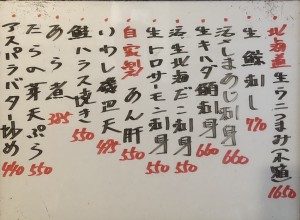 北海道生ウニつまみ 1650
生鯨刺し 770
活〆しまあじ刺身 660
生キハダ鮪刺身 660
活生北海だこ刺身 550
生トロサーモン刺身 550
自家製あん肝 550
いわし磯辺天 495
鮭ハラス焼き 550
あら煮 385
たらの芽天ぷら 550
アスパラバター炒め 440